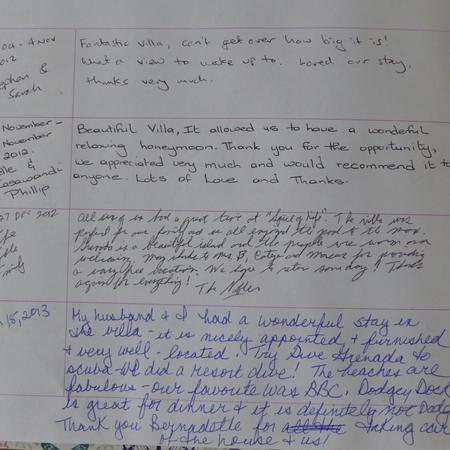 Oct - 4 Nov
2012
Stephen &
Sarah
Fantastic Villa, can't get over how big it is!
What a view to wake up to. Loved our stay,
thanks very much.
November -
November
2012.
&
Phillip
Beautiful Villa, It allowed us to have a wonderful
relaxing honeymoon. Thank you for the opportunity,
we appreciated very much and would recommend it to
anyone. Lots of Love and Thanks.
27 Dec 2012
All seven of us had a great time at
perfect for our family and we all enjoyed the pool to the max.
Grenada is a beautiful island and the people are warm and
welcoming. Many thanks to Mrs B, and for providing
a vacation. We hope to return someday! Thanks
again for everything! The
15, 2013
My husband & I had a wonderful stay in
the villa - it is nicely appointed & furnished
& very well-located. Try Dive Grenada to
scuba - we did a resort dive! The beaches are
fabulous - our favourite was BBC. Dodgey Dock
is great for dinner & it is definitely not Dodgey
Thank you Bernadette for taking care
of the house & us!